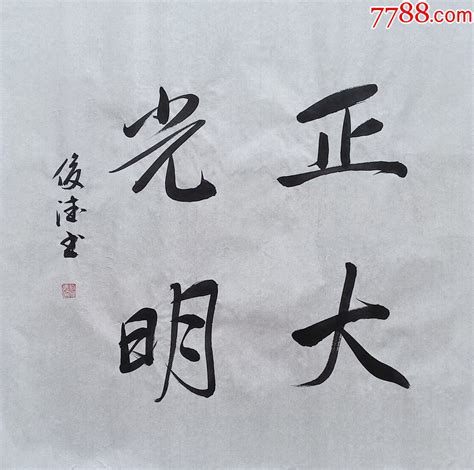 7788.com
正大
光明
俊 书